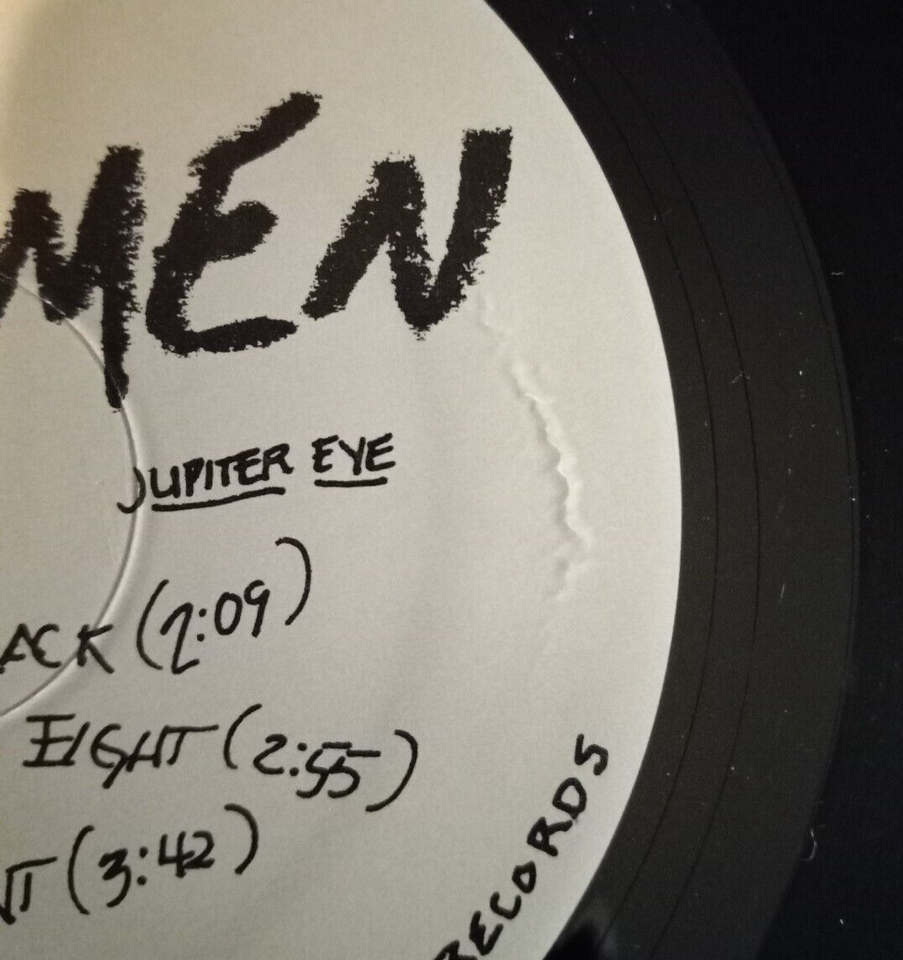 MEN
JUPITER EYE
ACK (2:09)
EIGHT (2:55)
NT (3:42)
RECORDS